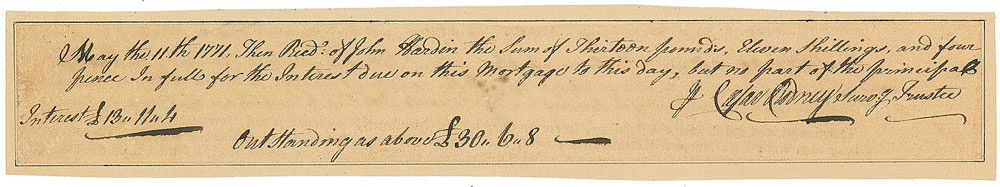 May the 11th 1771. Then Reed. of John Hardin the Sum of Thirteen pounds, Eleven Shillings, and four
pence In full for the Interest due on this Mortgage to this day, but no part of the principal
℣ Cæsar Rodney Surv.g Trustee
Interest £13 „ 11 „ 4
Outstanding as above £30 „ 6 „ 8